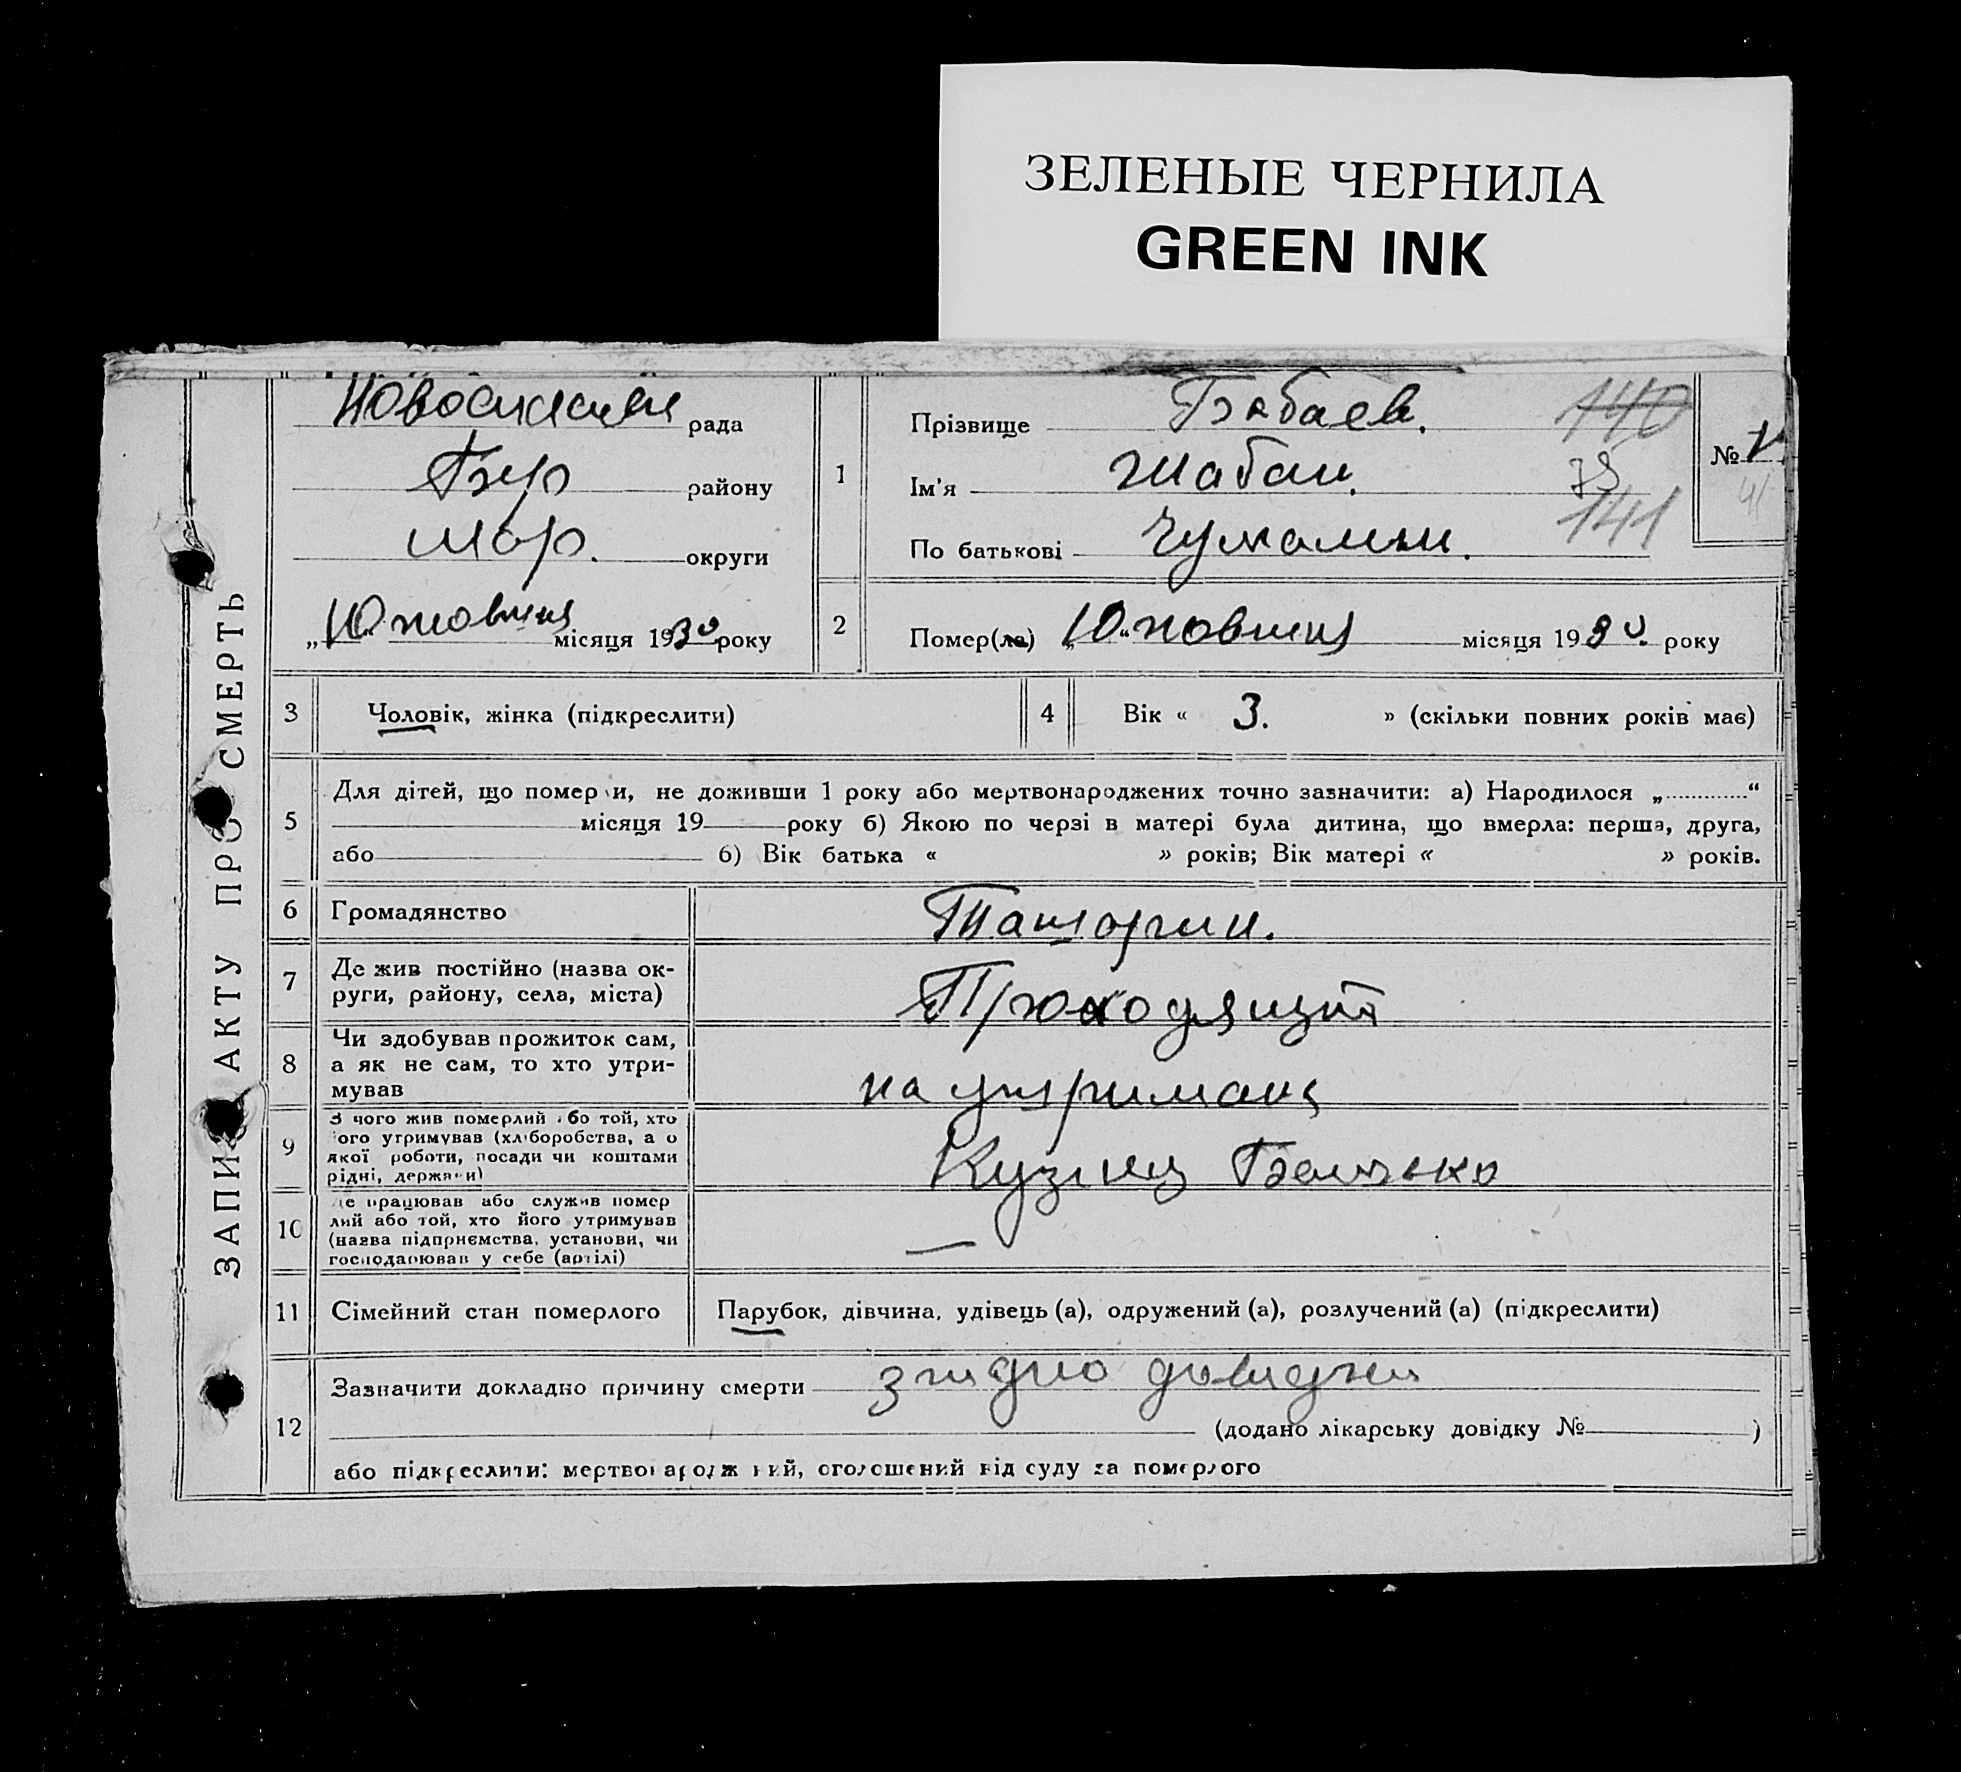 ЗЕЛЕНЫЕ ЧЕРНИЛА
GREEN INK
ЗАПИС АКТУ ПРО СМЕРТЬ
рада
району
округи
„10“ жовтня місяця 1930 року
1
Прізвище Бабаев.
Ім'я Шабан.
По батькові
140
141
№
2
Помер(ла) „10“ жовтня місяця 1930. року
3
Чоловік, жінка (підкреслити)
4
Вік « 3. » (скільки повних років має)
5
Для дітей, що померли, не доживши 1 року або мертвонароджених точно зазначити: а) Народилося „ “
місяця 19 року б) Якою по черзі в матері була дитина, що вмерла: перша, друга,
або б) Вік батька « » років; Вік матері « » років.
6
Громадянство
7
Де жив постійно (назва ок-
руги, району, села, міста)
Проходящий
8
Чи здобував прожиток сам,
а як не сам, то хто утри-
мував
на утримані
9
З чого жив померлий або той, хто
його утримував (хліборобства, а о
якої роботи, посади чи коштами
рідні, держави)
Кузнец Батько
10
Де працював або служив помер
лий або той, хто його утримував
(назва підприємства, установи, чи
господарював у себе (артілі)
—
11
Сімейний стан померлого
Парубок, дівчина, удівець (а), одружений (а), розлучений (а) (підкреслити)
12
Зазначити докладно причину смерти згидно довидки
(додано лікарську довідку № )
або підкреслити: мертвонароджений, оголошений від суду за померлого